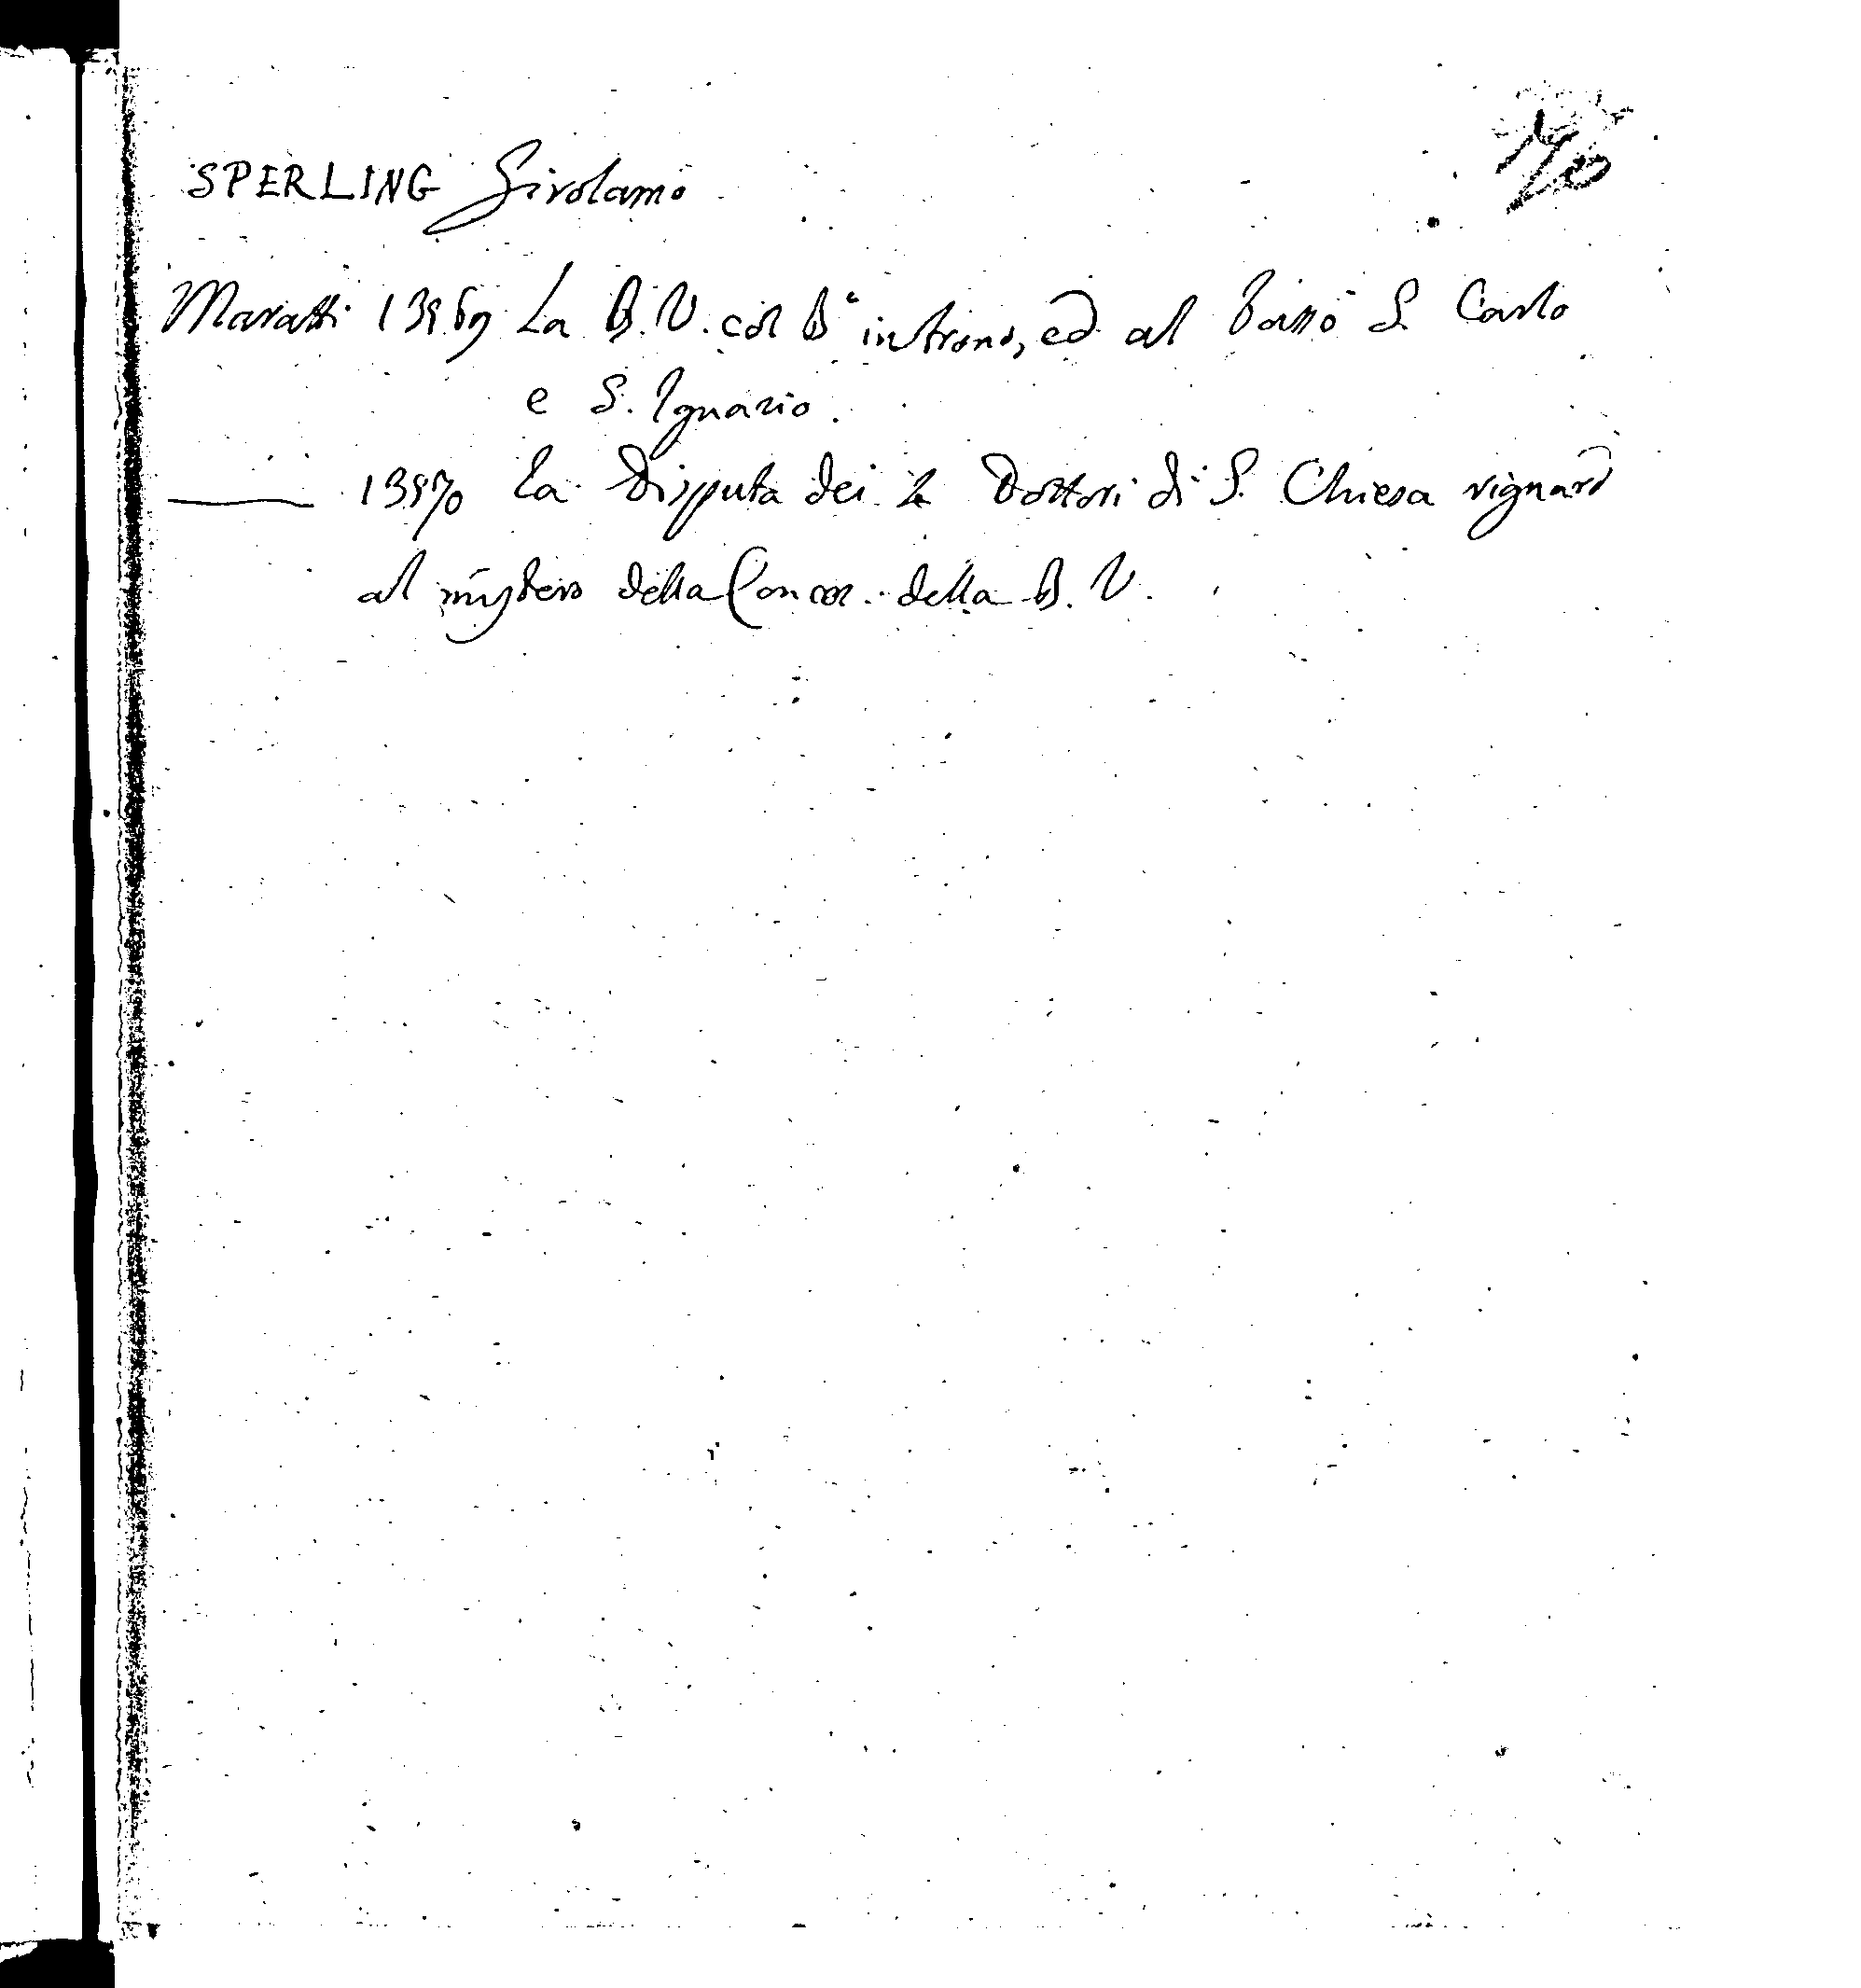 70
SPERLING Girolamo
Maratti 13969 La B. V. col B.º in trono, ed al basso S. Carlo
e S. Ignazio.
13970 La Disputa dei 4 Dottori di S. Chiesa riguard
al mistero della Concez. della B. V.